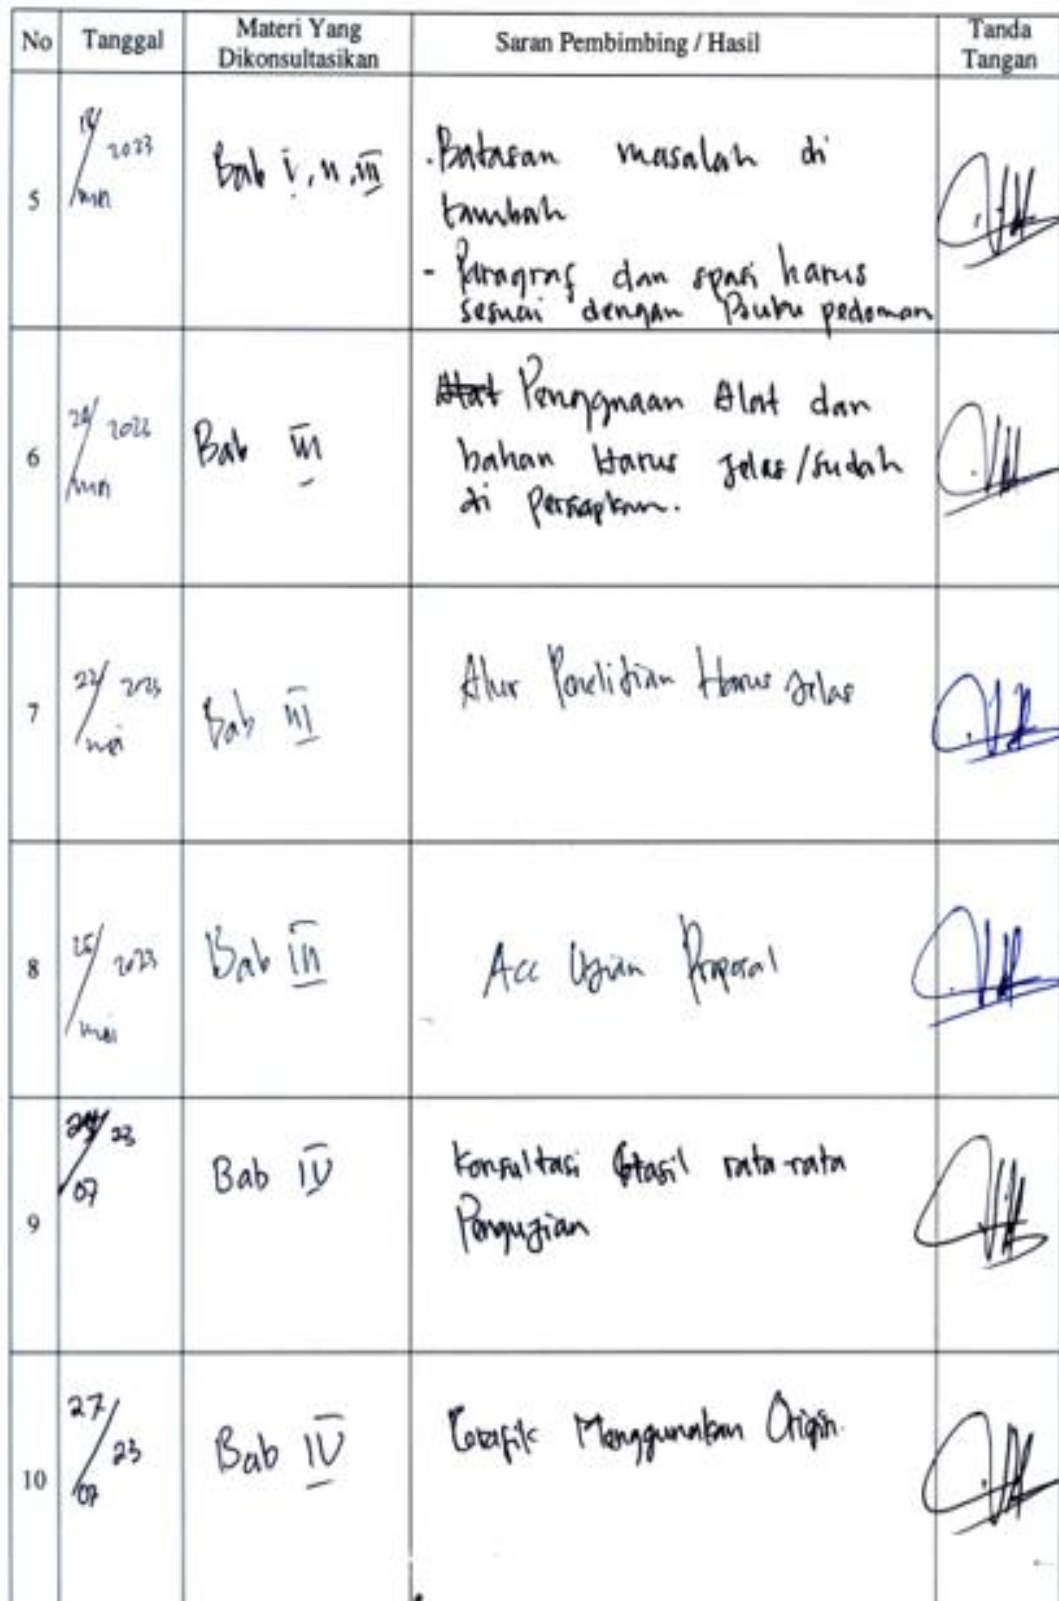 No Tanggal Materi Yang Dikonsultasikan Saran Pembimbing / Hasil Tanda Tangan
5 2023 mei Bab I, II, III
- Batasan masalah di
tambah
- Paragraf dan spasi harus
sesuai dengan Buku pedoman
6 2023 mei Bab III
Penggnaan Alat dan
bahan Harus jelas/sudah
di Persiapkan.
7 22/2023 mei Bab III Alur Penelitian Harus jelas
8 25/2023 mei Bab III Acc Ujian Proposal
9 23 07 Bab IV
Konsultasi Hasil rata-rata
Pengujian
10 27/23 07 Bab IV Grafik Menggunakan Origin.